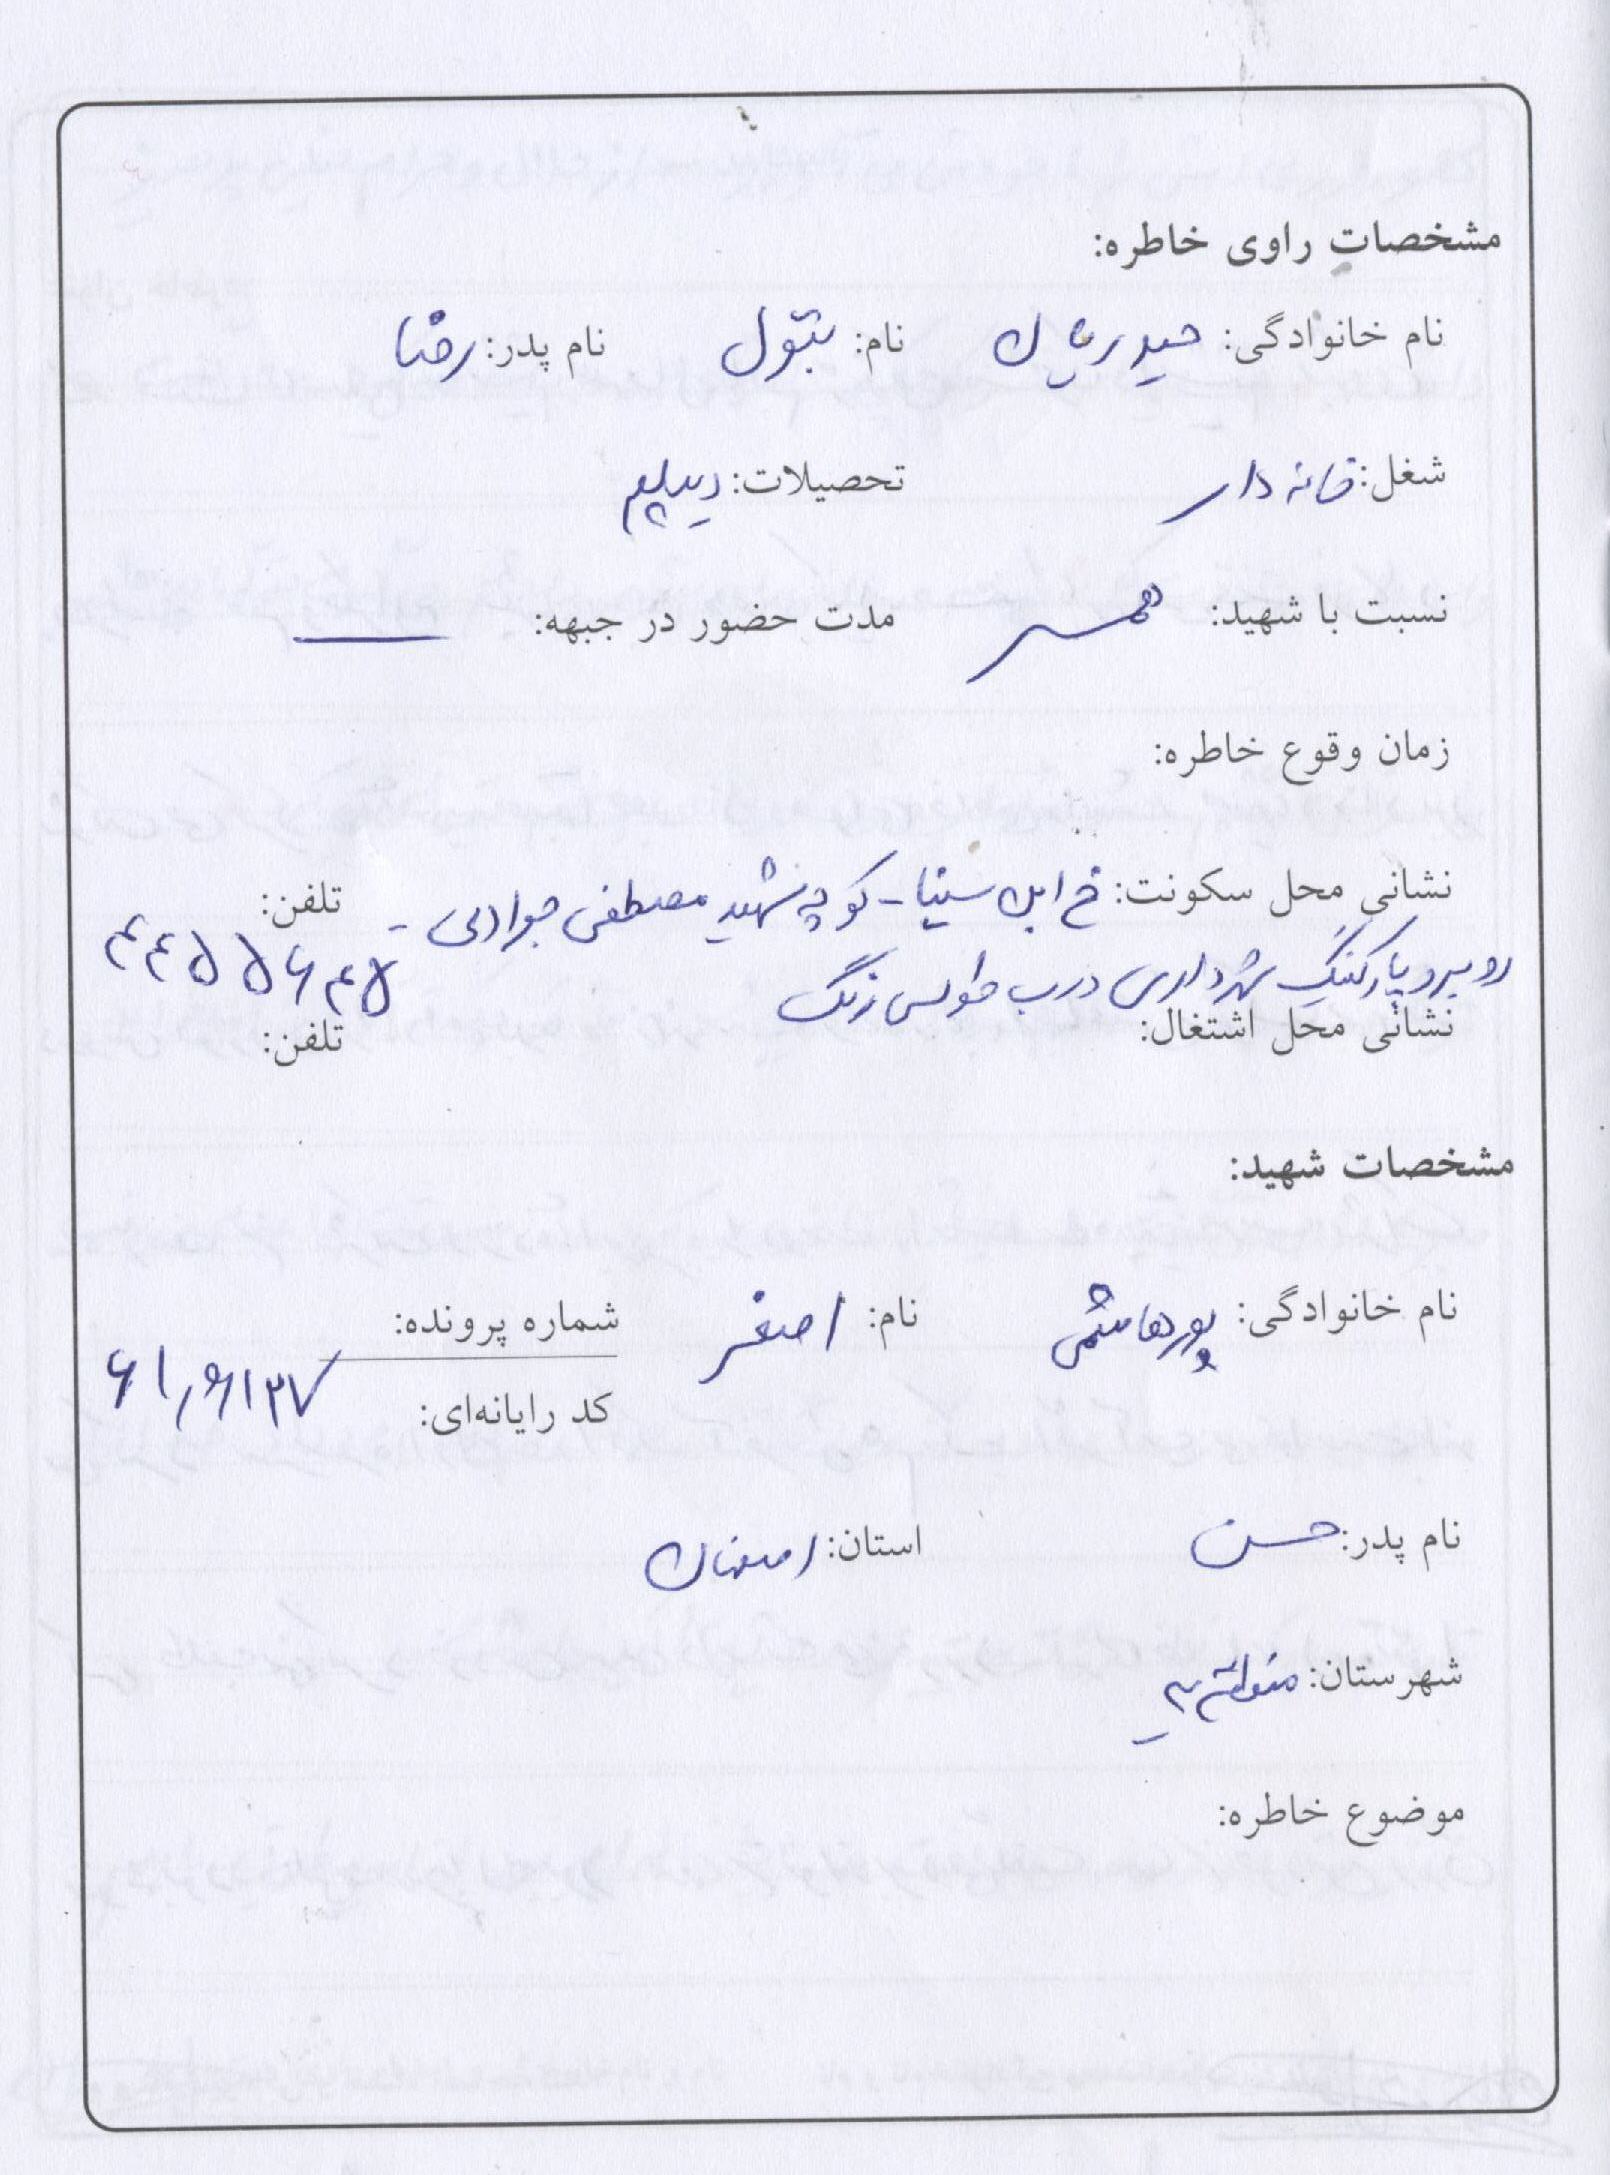 مشخصات راوی خاطره:
نام خانوادگی: حیدریان نام: بتول نام پدر: رضا
شغل: خانه دار تحصیلات: دیپلم
نسبت با شهید: همسر مدت حضور در جبهه: ــــ
زمان وقوع خاطره:
نشانی محل سکونت: خ ابن سینا - کوچه شهید مصطفی جوادی - تلفن:
روبرو پارکینگ شهرداری درب طوسی رنگ ۴۴۵۵۶۴۵
نشانی محل اشتغال: تلفن:
مشخصات شهید:
نام خانوادگی: پورهاشمی نام: اصغر شماره پرونده:
کد رایانه‌ای:
نام پدر: حسن استان: اصفهان
شهرستان:
موضوع خاطره: